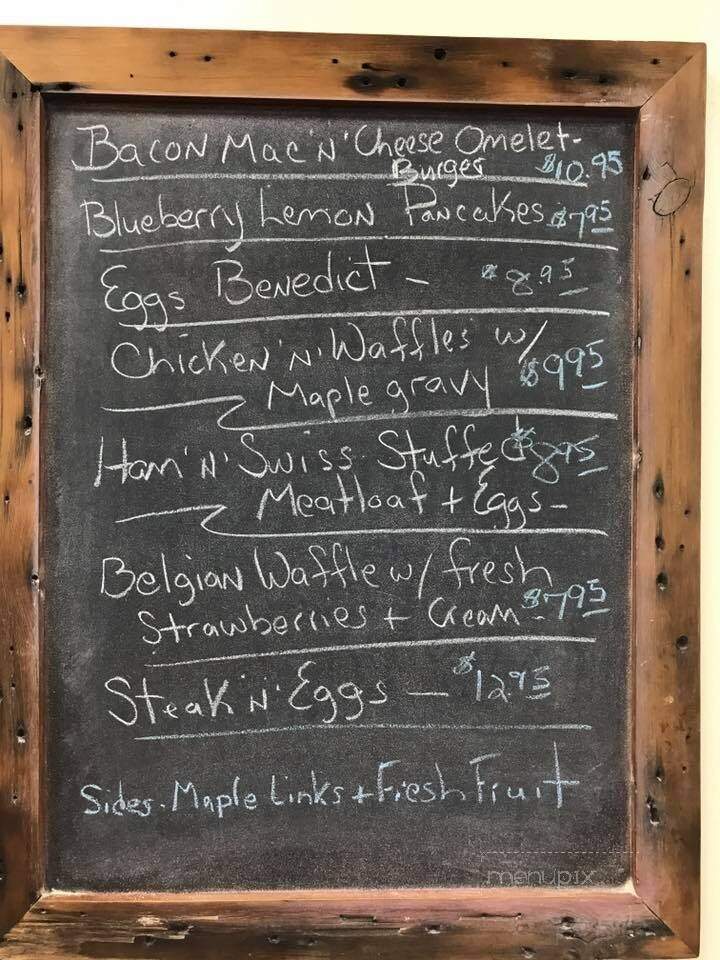 Bacon Mac 'N' Cheese Omelet-
Burger $10.95
Blueberry Lemon Pancakes $7.95
Eggs Benedict - $8.95
Chicken 'N' Waffles w/
Maple gravy $9.95
Ham 'N' Swiss Stuffed $8.95
Meatloaf + Eggs -
Belgian Waffle w/ fresh
Strawberries + Cream - $7.95
Steak 'N' Eggs - $12.95
Sides - Maple Links + Fresh Fruit
menupix